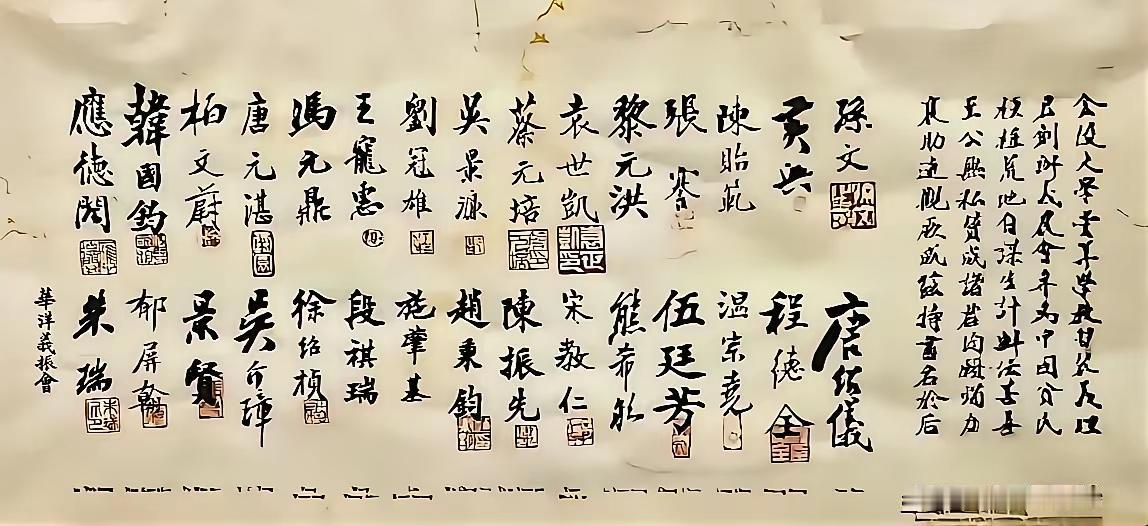 金陵大學堂算學教
君創辦義農會專為中國貧民
墾植荒地自謀生計此法甚善
至公無私贊成諸君均願竭力
襄助速觀厥成茲將署名於后
孫文
唐紹儀
黃興
程德全
陳貽範
溫宗堯
張謇
伍廷芳
黎元洪
熊希齡
袁世凱
宋教仁
蔡元培
陳振先
吳景濂
趙秉鈞
劉冠雄
施肇基
王寵惠
段祺瑞
馮元鼎
徐紹楨
唐元湛
吳介璋
柏文蔚
景賢
韓國鈞
郁屏翰
應德閎
朱瑞
華洋義振會